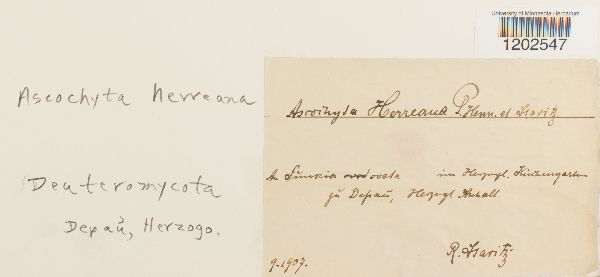 University of Minnesota Herbarium
1202547
Ascochyta herreana
Deuteromycota
Depaů, Herzogo.
Ascochyta Herreana P. Henn. et Staritz
An Funkia ovata im Herzogl. Küchengarten
zu Deßau, Herzogt. Anhalt
R. Staritz
9.1907.